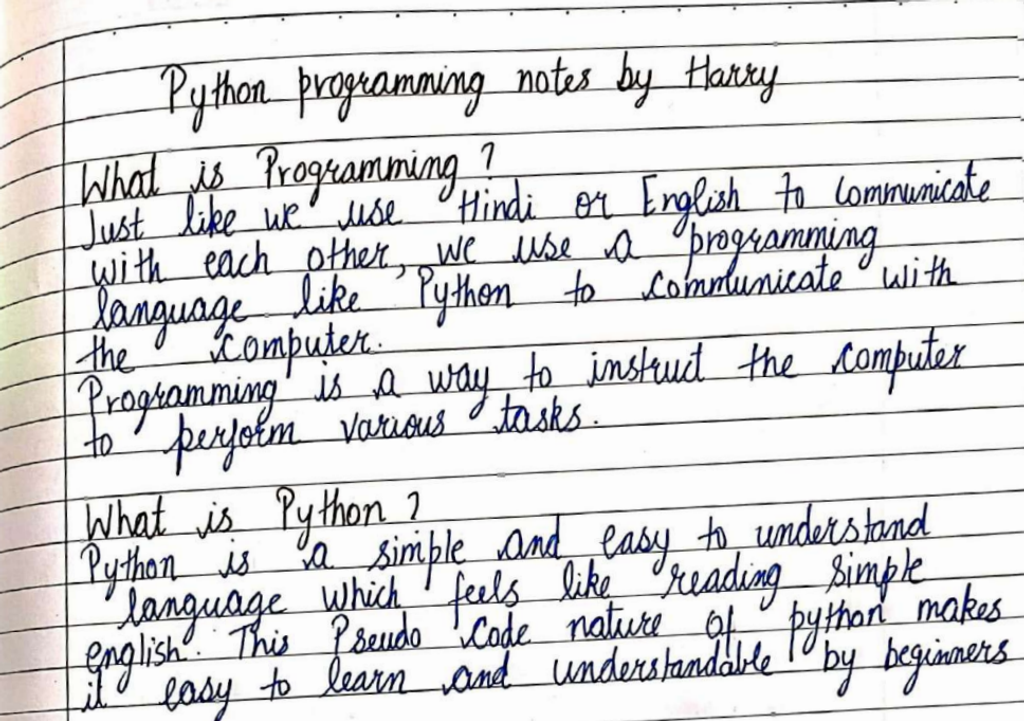 Python programming notes by Harry
What is Programming ?
Just like we use Hindi or English to Communicate
with each other, we use a programming
language like Python to communicate with
the computer.
Programming is a way to instruct the computer
to perform various tasks.
What is Python ?
Python is a simple and easy to understand
language which feels like reading simple
english. This Pseudo code nature of python makes
it easy to learn and understandable by beginners